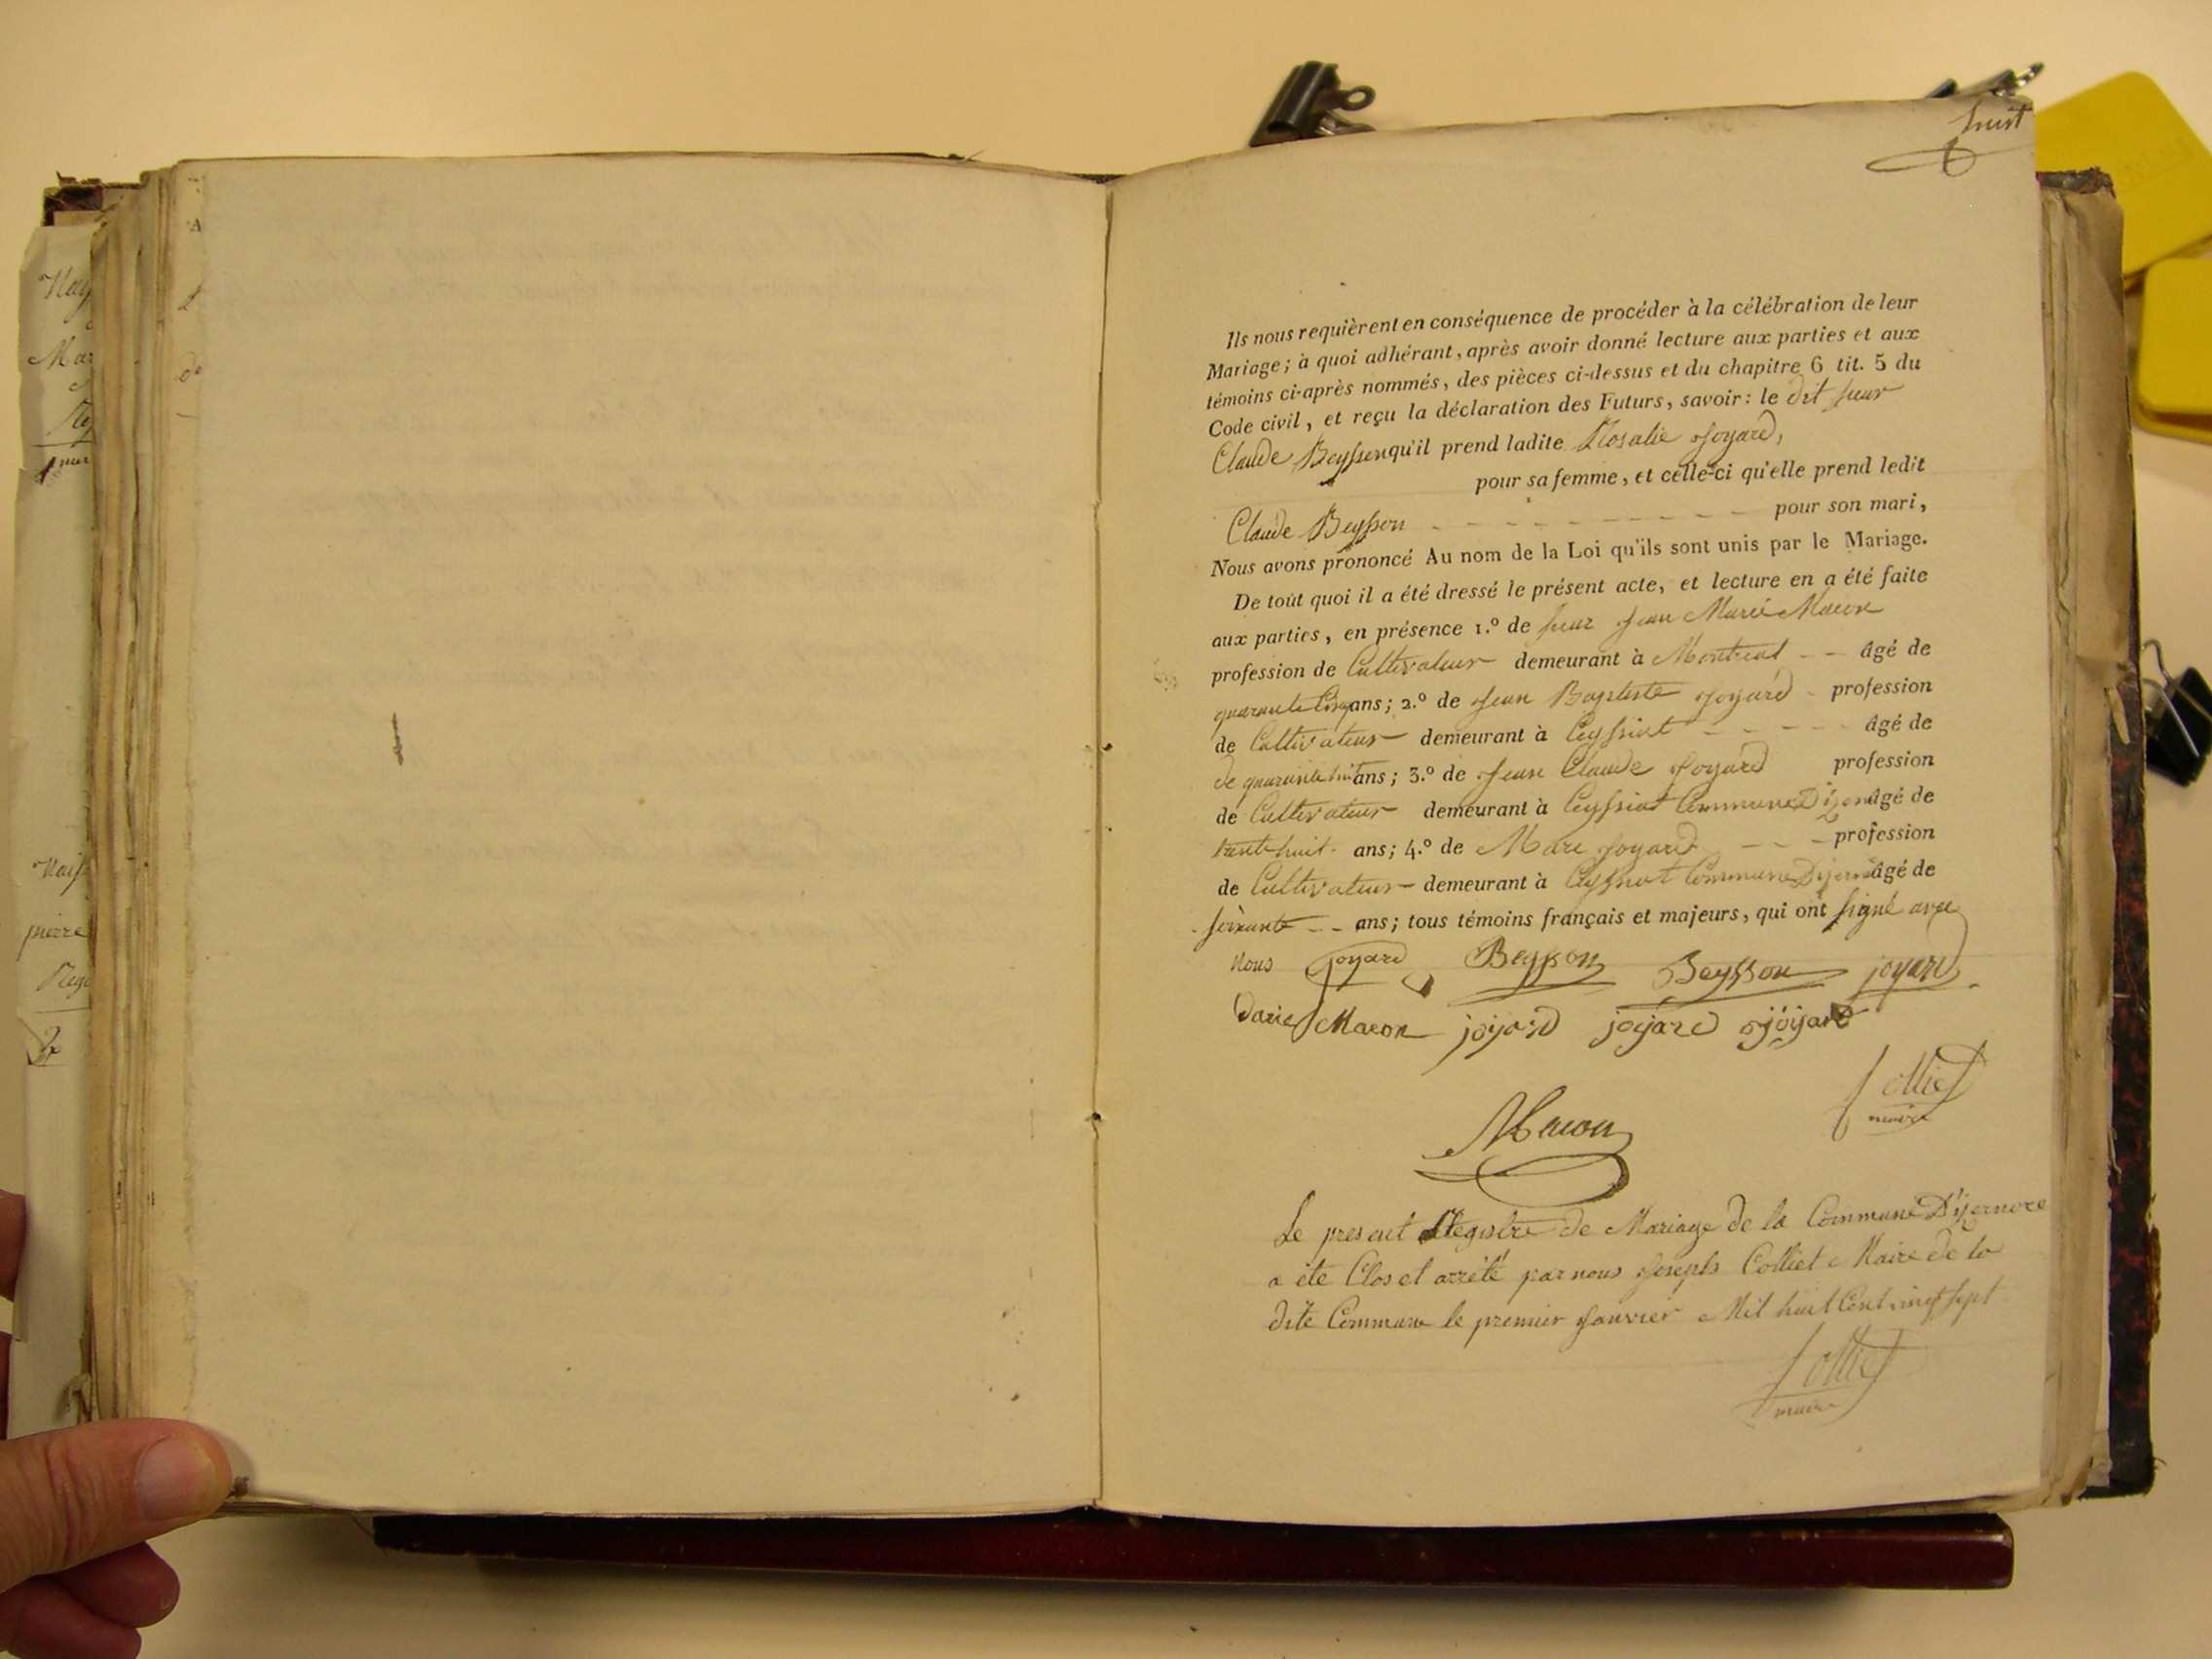 huit
Ils nous requièrent en conséquence de procéder à la célébration de leur
Mariage ; à quoi adhérant, après avoir donné lecture aux parties et aux
témoins ci-après nommés, des pièces ci-dessus et du chapitre 6 tit. 5 du
Code civil, et reçu la déclaration des Futurs, savoir : le dit sieur
Claude Beysson qu'il prend ladite Rosalie Joyard,
pour sa femme, et celle-ci qu'elle prend ledit
Claude Beysson - - - - - - - - - - pour son mari,
Nous avons prononcé Au nom de la Loi qu'ils sont unis par le Mariage.
De tout quoi il a été dressé le présent acte, et lecture en a été faite
aux parties, en présence 1.º de sieur Jean Marie Macon
profession de Cultivateur demeurant à Montreal - - âgé de
quarante Cinq ans ; 2.º de Jean Baptiste Joyard - profession
de Cultivateur demeurant à Ceyssiat - - - - - âgé de
de quarante huit ans ; 3.º de Jean Claude Joyard profession
de Cultivateur demeurant à Ceyssiat Commune D'izer âgé de
trente huit ans ; 4.º de Marc Joyard - - - profession
de Cultivateur demeurant à Ceyssiat Commune Dizer âgé de
soixante - - ans ; tous témoins français et majeurs, qui ont signé avec
nous joyard Beysson Beysson joyard
Macon joyard joyard joyard
Colliet
maire
Macon
Le present Registre de Mariage de la Commune D'izernore
a été Clos et arrêté par nous Joseph Colliet Maire de la
dite Commune le premier Janvier Mil huit Cent vingt sept
Colliet
maire
Mar
pierre